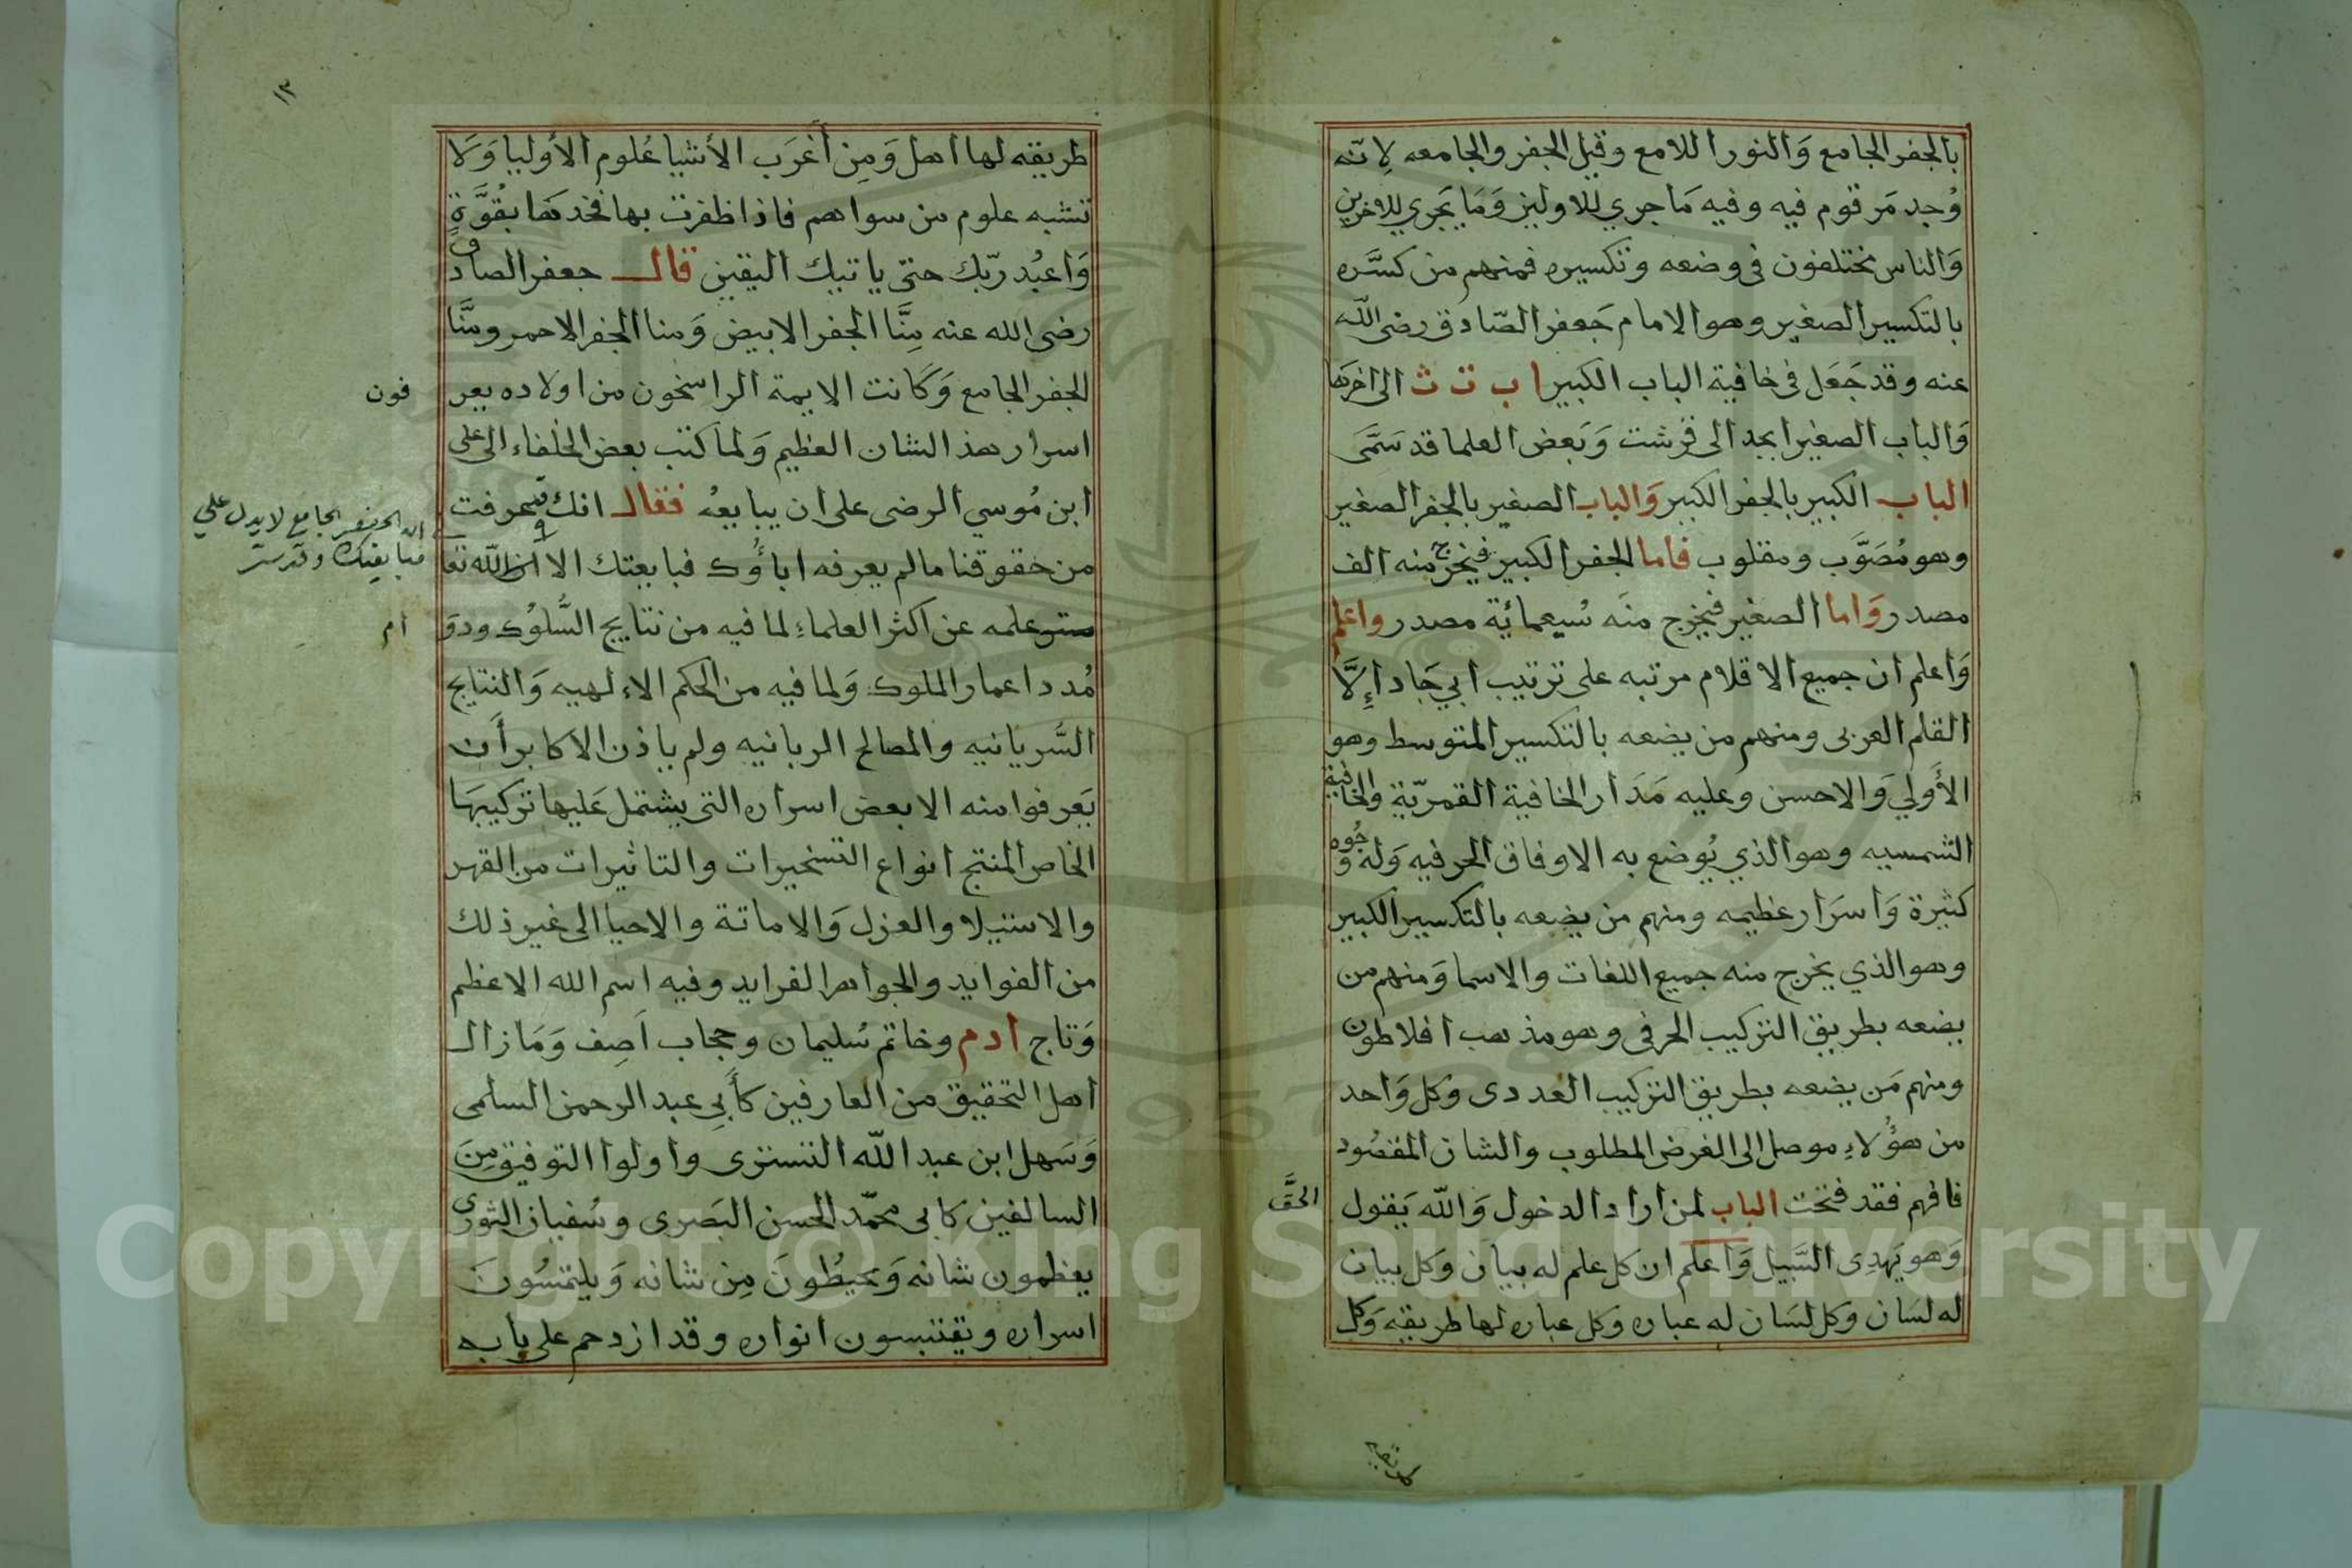 بالجفر الجامع وَالنور اللامع وقيل الجفر والجامعه لِانّه
وُجد مَرقوم فيه وفيه مَا جري للاولين وَمَا يَجري للاخرين
وَالناس مختلفون فى وضعه وتكسيره فمنهم من كسَّره
بالتكسير الصغير وهو الامام جَعفر الصّادق رضى اللّه
عنه وقد جَعَل فى خافية الباب الكبير ا ب ت ث الى اخرها
وَالباب الصغير ابجد الى قرشت وَبَعض العلما قد سَمَّى
الباب الكبير بالجفر الكبير وَالباب الصغير بالجفر الصغير
وهو مُصَوَّب ومقلوب فاما الجفر الكبير فيخرج منه الف
مصدر وَاما الصغير فيخرج منه سُبعمائة مصدر واعلم
وَاعلم ان جميع الاقلام مرتبه على ترتيب ابي جَاد اِلَّا
القلم العربى ومنهم من يضعه بالتكسير المتوسط وهو
الأَولي وَالاحسن وعليه مَدَار الخافية القمريّة والخافية
الشمسيه وهو الذي يُوضع به الاوفاق الحرفيه وَله وجُوه
كثيرة وَاسرَار عظيمه ومنهم من يضعه بالتكسير الكبير
وهو الذي يخرج منه جميع اللغات والاسما وَمنهم من
يضعه بطريق التركيب الحرفى وهو مذهب افلاطون
ومنهم مَن يضعه بطريق التركيب العددى وكل وَاحد
من هؤُلاءِ موصل الى الغرض المطلوب والشان المقصُود
فافهم فقد فتحت الباب لمن اراد الدخول وَاللّه يَقول الحقَّ
وَهو يَهدِى السَّبيل وَاعلم ان كل علم له بيان وكل بيان
له لسَان وكل لسَان له عباره وكل عباره لها طريقه وَكل
١٣
طريقه لها اهل وَمِن أَغرَب الأشيا عُلوم الأوليا وَلا
تشبه علوم من سواهم فاذا ظفرت بها فخدها بقُوَّةٍ
وَاعبُد ربّك حتى ياتيك اليقين قال جعفر الصادق
رضى الله عنه مِنَّا الجفر الابيض وَمنا الجفر الاحمر ومنَّا
الجفر الجامع وَكانت الايمة الراسخون من اولاده يعر فون
اسرار هذ الشان العظيم وَلما كتب بعض الخلفاء الى على
ابن مُوسي الرضى على ان يبايعهُ فقال انك قد عرفت
من حقوقنا مالم يعرفه اباؤُك فبايعتك الا ان اللّه تعا
الا ان الجفر الجامع لا يدل على
مبايعتك وقد ستر
ستر علمه عن اكثر العلماءِ لما فيه من نتايج السُّلوُك ودوَ ام
مُدد اعمار الملوك وَلما فيه من الحكم الاءلهيه وَالنتايج
السُّريانيه والمصالح الربانيه ولم ياذن الاكابر أَن
يَعرفوا منه الا بعض اسراره التى يشتمل عَليها تركيبهَا
الخاص المنتج انواع التسخيرات والتاثيرات من القهر
والاستيلا والعزل وَالاماتة والاحيا الى غير ذلك
من الفوايد والجواهر الفرايد وفيه اسم الله الاعظم
وَتاج ادم وخاتم سُليمان وحجاب اَصِف وَمَا زال
اهل التحقيق من العارفين كأَبي عبد الرحمن السلمى
وَسَهل ابن عبد اللّه التسترى واولوا التوفيق مِنَ
السالفين كابى محمّد الحسن البَصرى وسُفيان الثورى
يعظمون شانه وَيحيطُونَ مِن شانه وَيلتمسُونَ
اسراره ويقتبسون انواره وقد ازدحم على بابه
Copyright © King Saud University